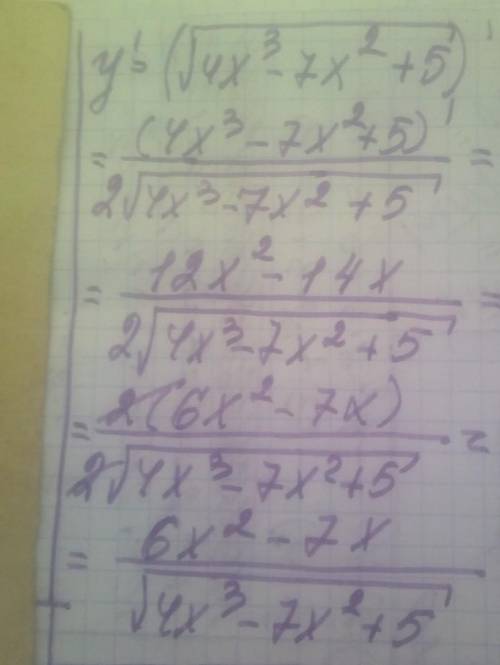 y' = (√(4x³ - 7x² + 5))' 
= (4x³ - 7x² + 5)' / 2√(4x³ - 7x² + 5) =
= 12x² - 14x / 2√(4x³ - 7x² + 5) =
= 2(6x² - 7x) / 2√(4x³ - 7x² + 5) =
= 6x² - 7x / √(4x³ - 7x² + 5)